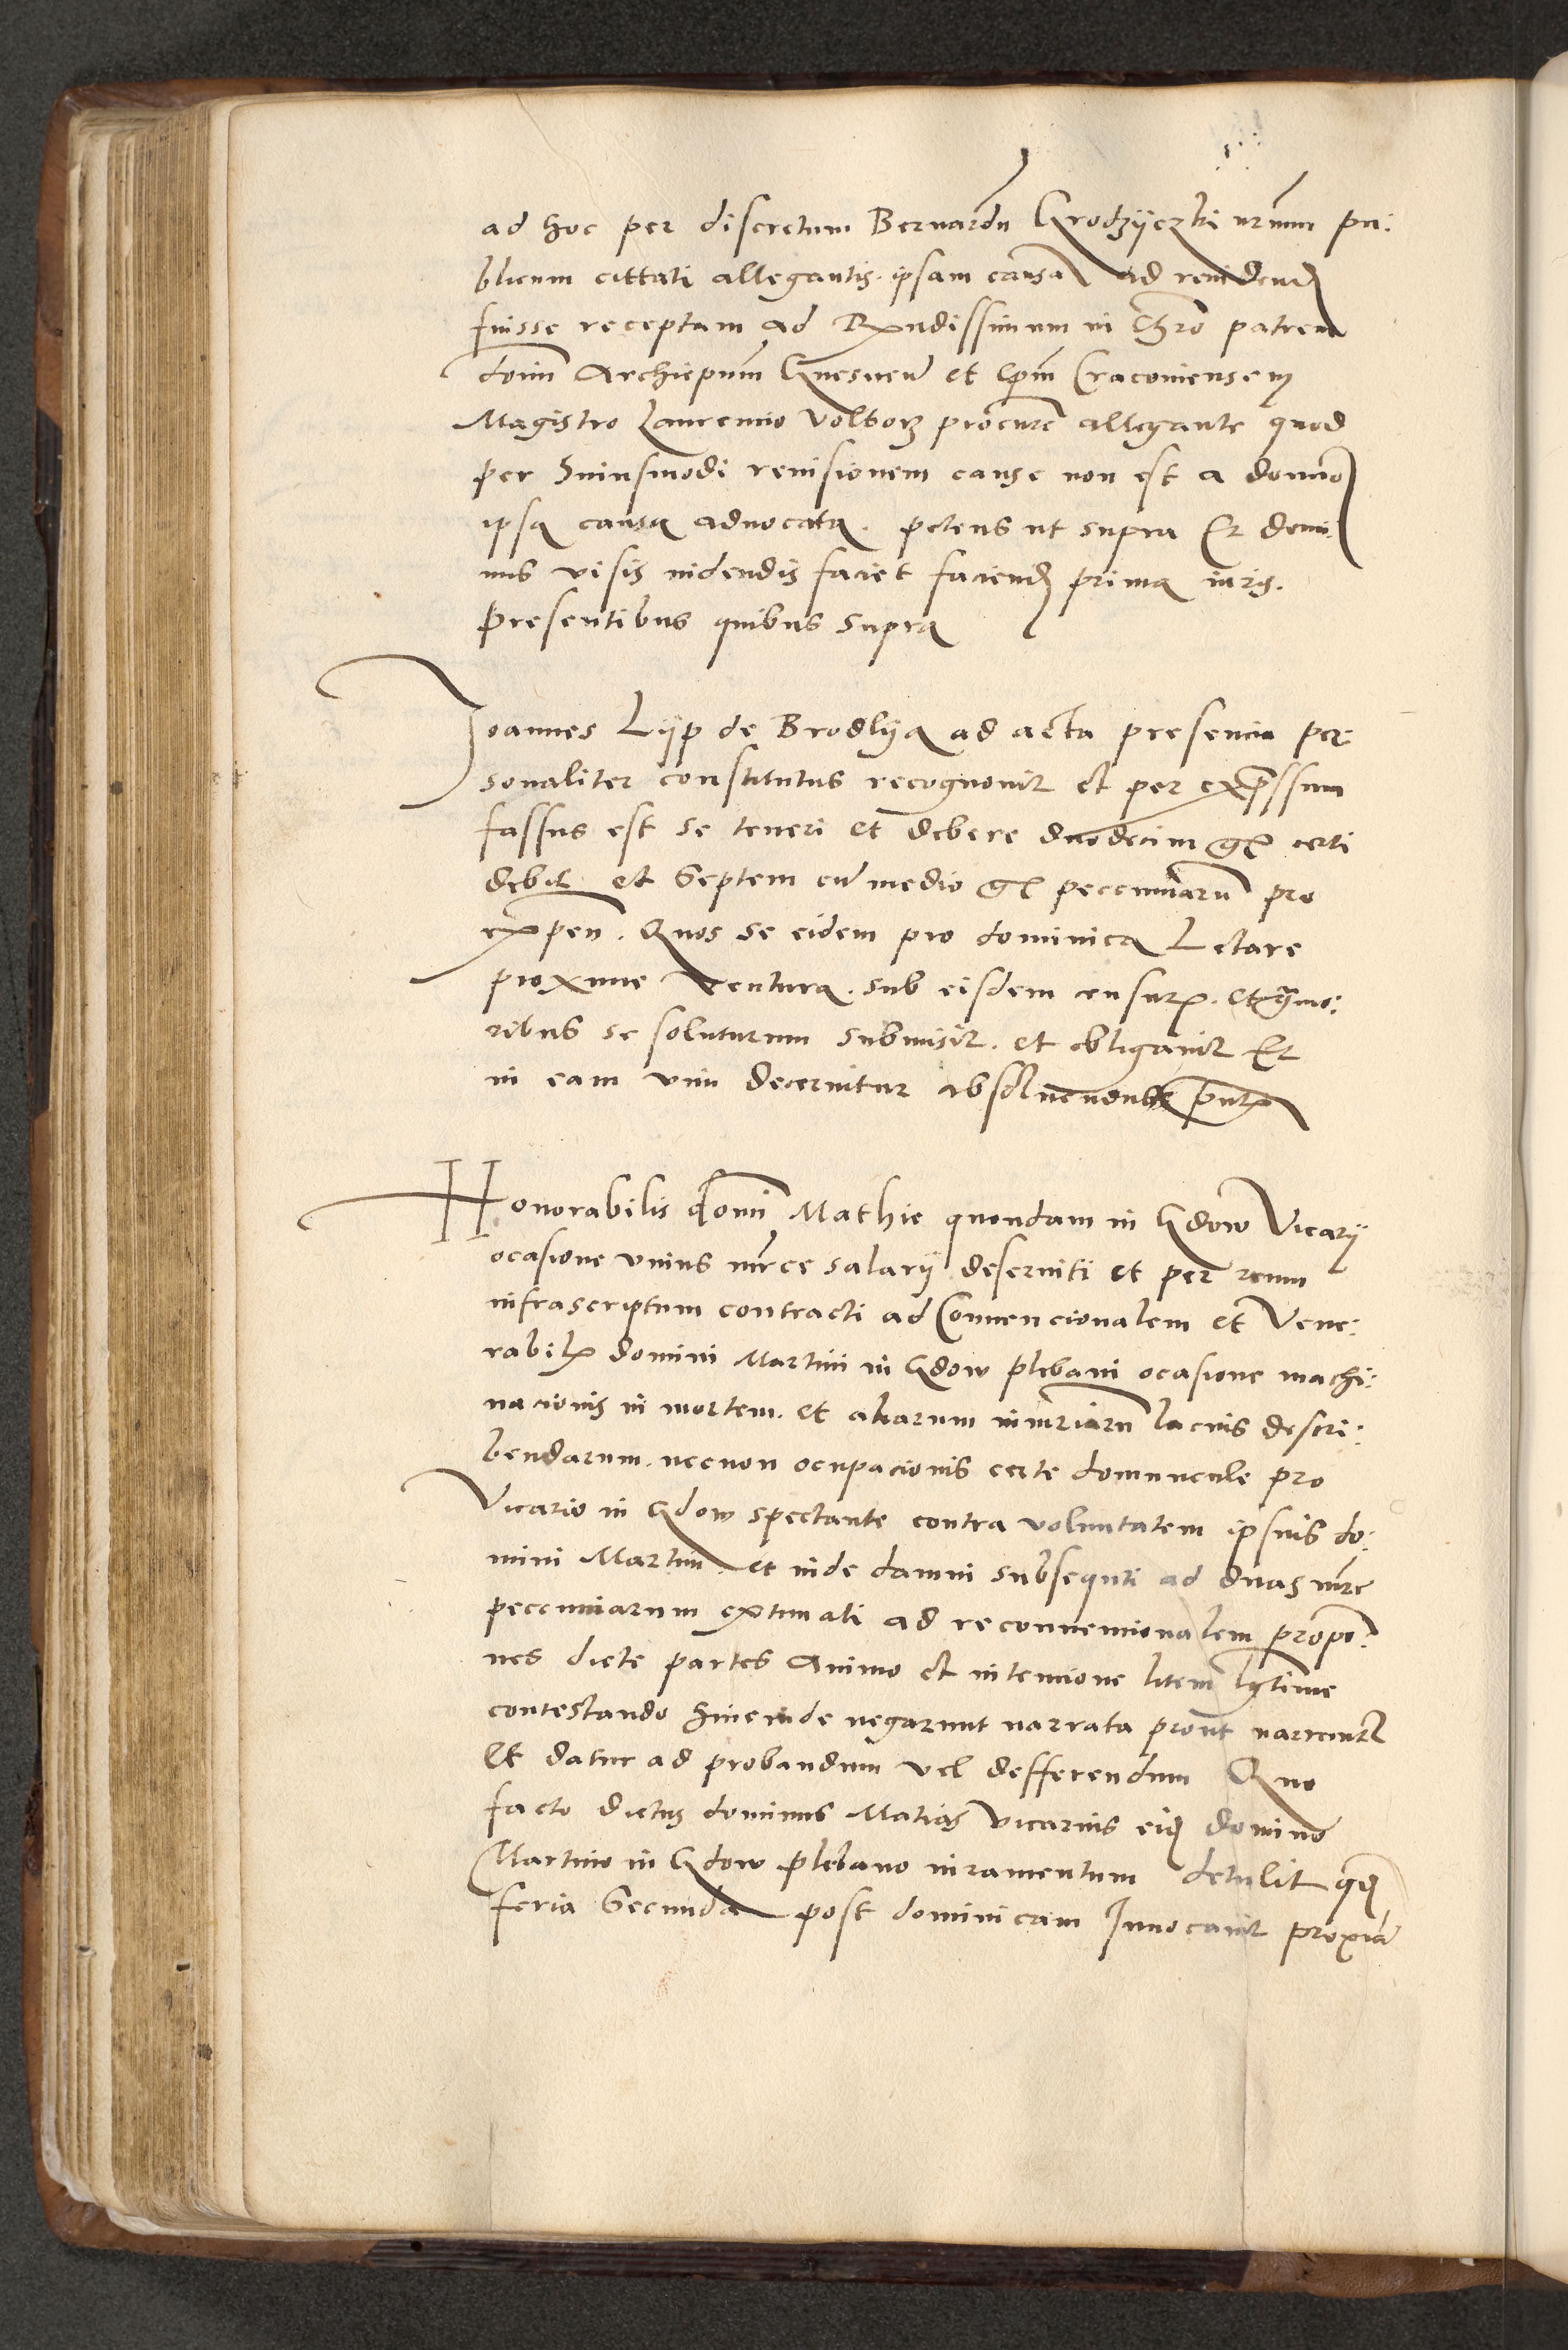 ad hoc per discretum Bernardu Grodzÿczki nrium pu:
blicum cittati allegantis. ipsam causa ad revidend
fuisse receptam ad Rxndissimum in Chro patrem
dom Archiepum Gnesnen et Epm Cracoviensem
Magistro Laurencio Volborz procure allegante quod
per huiusmodi revisionem cause non est a domino
ipsa causa advocata. petens ut supra Et domi
nus visis videndis faciet faciend prima iuris.
Presentibus quibus supra
Joannes Lÿp de Brodlÿa ad acta presencia per
sonaliter constitutus recognovit et per expssum
fassus est se teneri et debere duodecim gr certi
debit et Septem cu medio gr peccuniaru pro
expen. Quos se eidem pro dominica Letare
proxime ventura. sub eisdem censur. et gmo:
ribus se soluturum submisit. et obligavit Et
in eam vim decernitur absolvendus pntr
Honorabilis domi Mathie quondam in Gdow Vicarÿ
ocasione unius mrce salarÿ deserviti et per reum
infrascriptum contracti ad Convencionalem et Vene:
rabil domini Martini in Gdow plebani ocasione machi:
nacionis in mortem. et aliarum iniuriaru lacius descri:
bendarum. necnon ocupacionis certe domuncule pro
Vicario in Gdow spectante contra voluntatem ipsius do:
mini Martini et inde damni subsequti ad duas mrc
peccuniarum extimati ad reconvencionalem propo:
nes dicte partes Animo et intencione litem lgtime
contestando hincinde negarunt narrata prout narrantr
Et datur ad probandum vel defferendum Quo
facto dictus dominus Matias vicarius eid domino
Martino in Gdow plebano iuramentum detulit qd
feria Secunda post dominicam Invocavit proxia